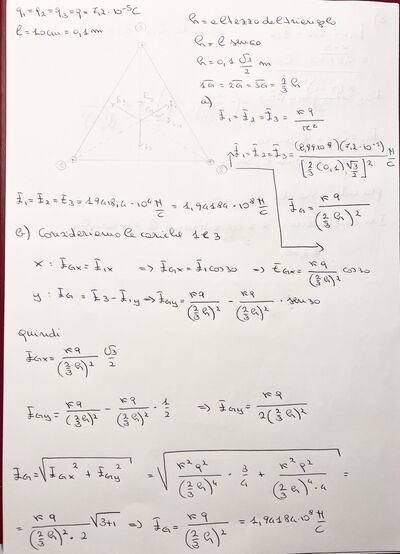 q₁ = q₂ = q₃ = q = 7,2 · 10⁻⁵ C
l = 10 cm = 0,1 m
h = altezza del triangolo
h = l sen 60
h = 0,1 √3/2 m
1G = 2G = 3G = 2/3 h
a)
E₁ = E₂ = E₃ = kq/r²
E₁ = E₂ = E₃ = (8,99·10⁹)(7,2·10⁻⁵)/[2/3 (0,1)√3/2]² N/C
E₁ = E₂ = E₃ = 19418,4 · 10⁴ N/C = 1,94184 · 10⁸ N/C
E_G = kq/(2/3 h)²
b) Consideriamo le cariche 1 e 3
x : E_Gx = E₁x => E_Gx = E₁ cos 30 => E_Gx = kq/(2/3 h)² cos 30
y : E_G = E₃ - E₁y => E_Gy = kq/(2/3 h)² - kq/(2/3 h)² · sen 30
quindi
E_Gx = kq/(2/3 h)² √3/2
E_Gy = kq/(2/3 h)² - kq/(2/3 h)² · 1/2 => E_Gy = kq/2(2/3 h)²
E_G = √(E_Gx² + E_Gy²) = √(k²q²/(2/3 h)⁴ · 3/4 + k²q²/(2/3 h)⁴ · 4) =
= kq/(2/3 h)² · 2 √3+1 => E_G = kq/(2/3 h)² = 1,94184 · 10⁸ N/C